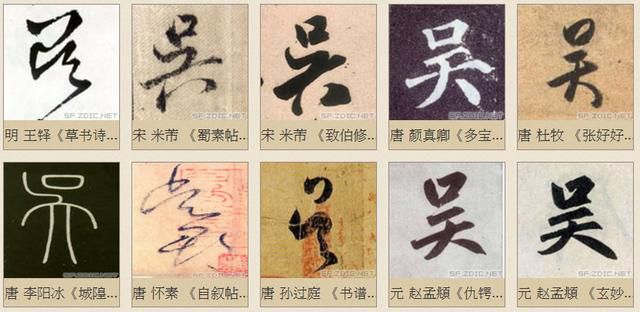 吴 吳 吳 吴 吴
SF.ZDIC.NET SF.ZDIC.NET SF.ZDIC.NET SF.ZDIC.NET SF.ZDIC.NET
明 王铎《草书诗... 宋 米芾 《蜀素帖... 宋 米芾 《致伯修... 唐 颜真卿《多宝... 唐 杜牧 《张好好...
吳 吴 吴 吴
SF.ZDIC.NET SF.ZDIC.NET SF.ZDIC.NET SF.ZDIC.NET SF.ZDIC.NET
唐 李阳冰《城隍... 唐 怀素 《自叙帖... 唐 孙过庭 《书谱... 元 赵孟頫《仇锷... 元 赵孟頫 《玄妙...